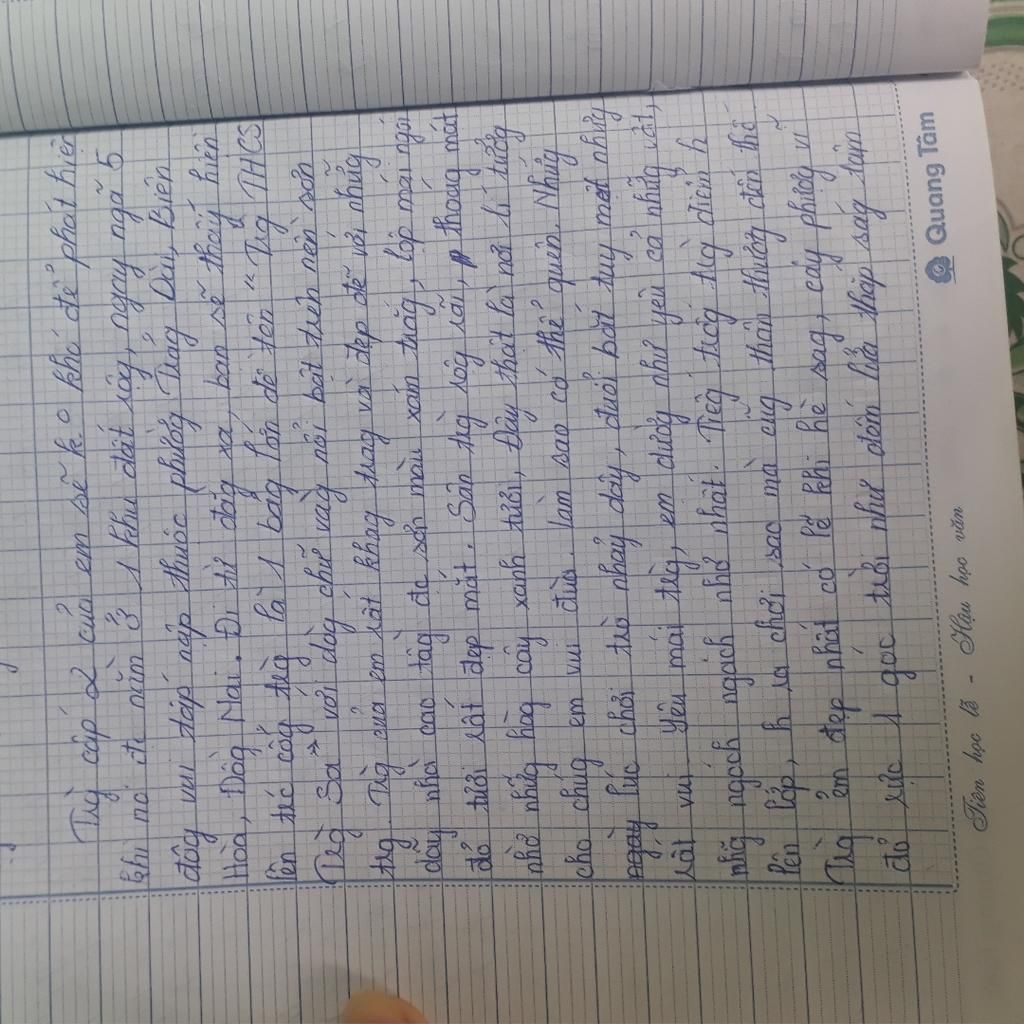 Trg cấp 2 của em sẽ k° khó để phát hiện
khi nó đc nằm ở 1 khu đất rộg, ngay ngã 5
đôg vui tấp nập thuộc phườg Trảg Dài, Biên
Hòa, Đồg Nai. Đi từ đằg xa, bạn sẽ thấy hiện
lên trc cổg trg là 1 bảg lớn đề tên "Trg THCS
Trg Sa" với dòg chữ vàg nổi bật trên nền sơn
trg. Trg của em rất khag trag và đẹp đẽ với nhữg
dãy nhà cao tầg đc sơn màu xán trắg, lớp mái ngói
đỏ tươi rất đẹp mắt. Sân trg rộg rãi, thoág mát
nhờ nhữg hàg cây xanh tươi, Đây thật là nơi lí tưởg
cho chúg em vui đùa. Làm sao có thể quên. Nhữg
lúc chơi trò nhảy dây, đuổi bắt tuy mệt nhưg
rất vui. Yêu mái trg, em dườg như yêu cả nhữg vật,
nhữg ngóch ngách nhỏ nhất. Tiếg trốg trg điểm h
lên lớp, h ra chơi sao mà cũg thân thươg đến thế
Trg em đẹp nhất có lẽ khi hè sag, cây phượg vĩ
đỏ rực 1 góc trời như đốm lửa thắp ság tâm
Quang Tâm
Tiên học lễ - Hậu học văn